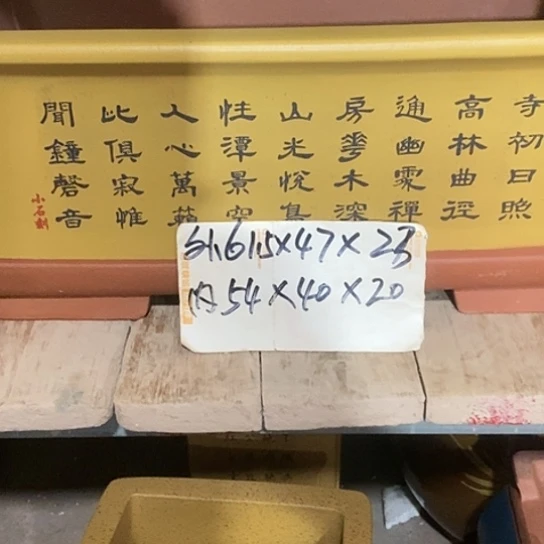 寺初日照
高林曲徑
通幽處禪
房花木深
山光悅鳥
性潭景空
人心萬籟
此俱寂惟
聞鐘磬音
小石刻
外61.5×47×23
内54×40×20